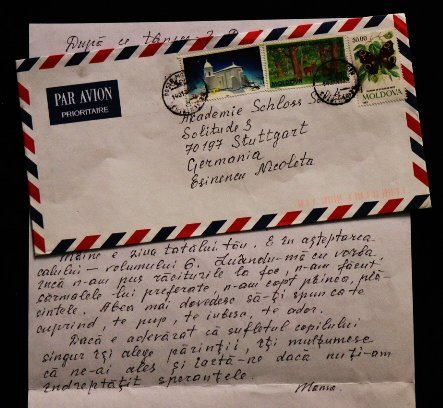 După ce
PAR AVION
PRIORITAIRE
MOLDOVA
Akademie Schloss Solitude
Solitude 3
70197 Stuttgart
Germania
Esinencu Nicoleta
Mâine e ziua tatălui tău. E în așteptarea
calului – volumului 6. Luându-mă cu vorba
încă n-am pus răciturile la foc, n-am făcut
sărmalele lui preferate, n-am copt pâinea, plă-
cintele. Abea mai dovedesc să-ți spun ca te
cuprind, te pup, te iubesc, te ador.
Dacă e adevărat că sufletul copilului
singur își alege părinții, îți mulțumesc
că ne-ai ales și iartă-ne dacă nu ți-am
îndreptățit speranțele.
Mama.